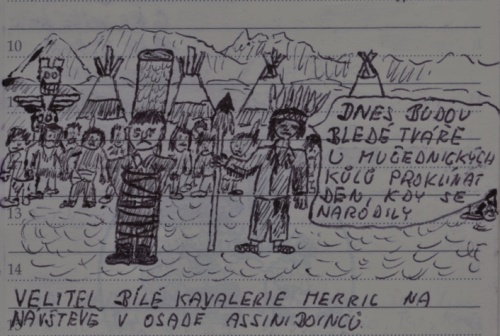 10
DNES BUDOU
BLEDÉ TVÁŘE
U MUČEDNICKÝCH
KŮLŮ PROKLÍNAT
DEN, KDY SE
NARODILY
13
14
VELITEL BÍLÉ KAVALERIE MERRIC NA
NÁVŠTĚVĚ V OSADĚ ASSINIBOINGŮ.